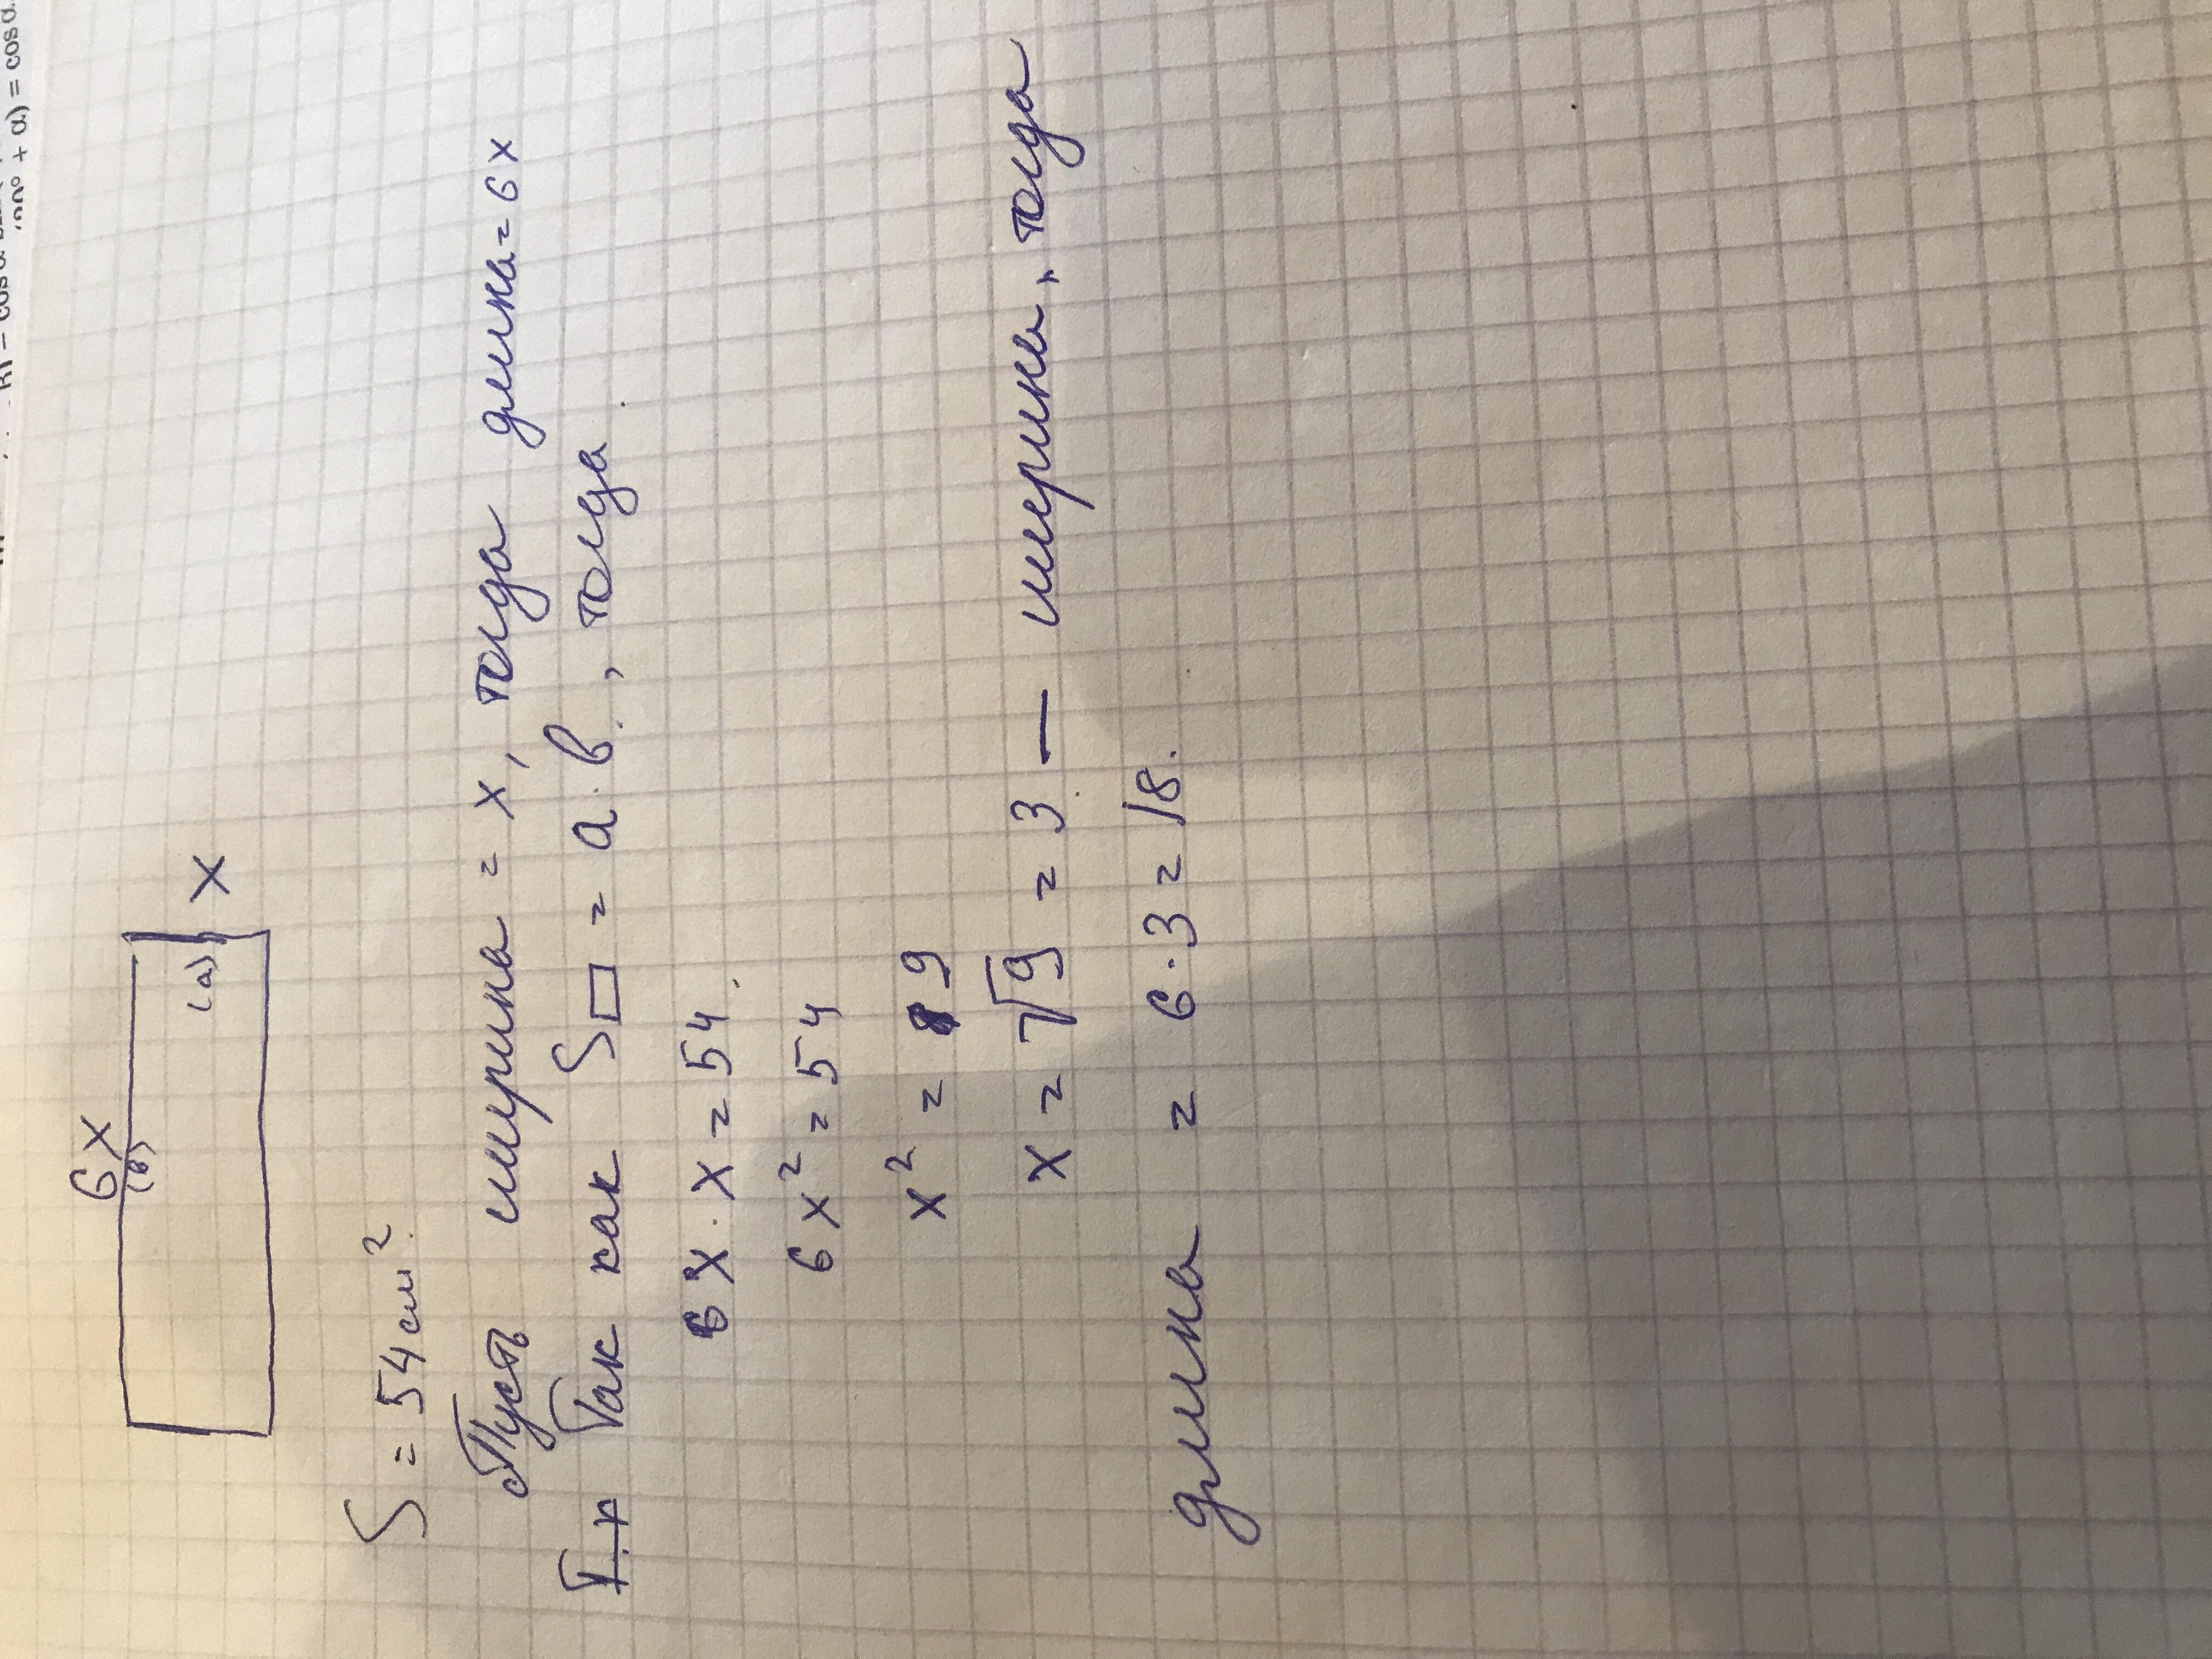 6х
(в)
(а) х
S = 54 см².
Пусть ширина = х, тогда длина = 6х
Т.к Так как S□ = а·в, тогда
6х·х = 54.
6х² = 54
х² = 9
х = √9 = 3 — ширина, тогда
длина = 6·3 = 18.